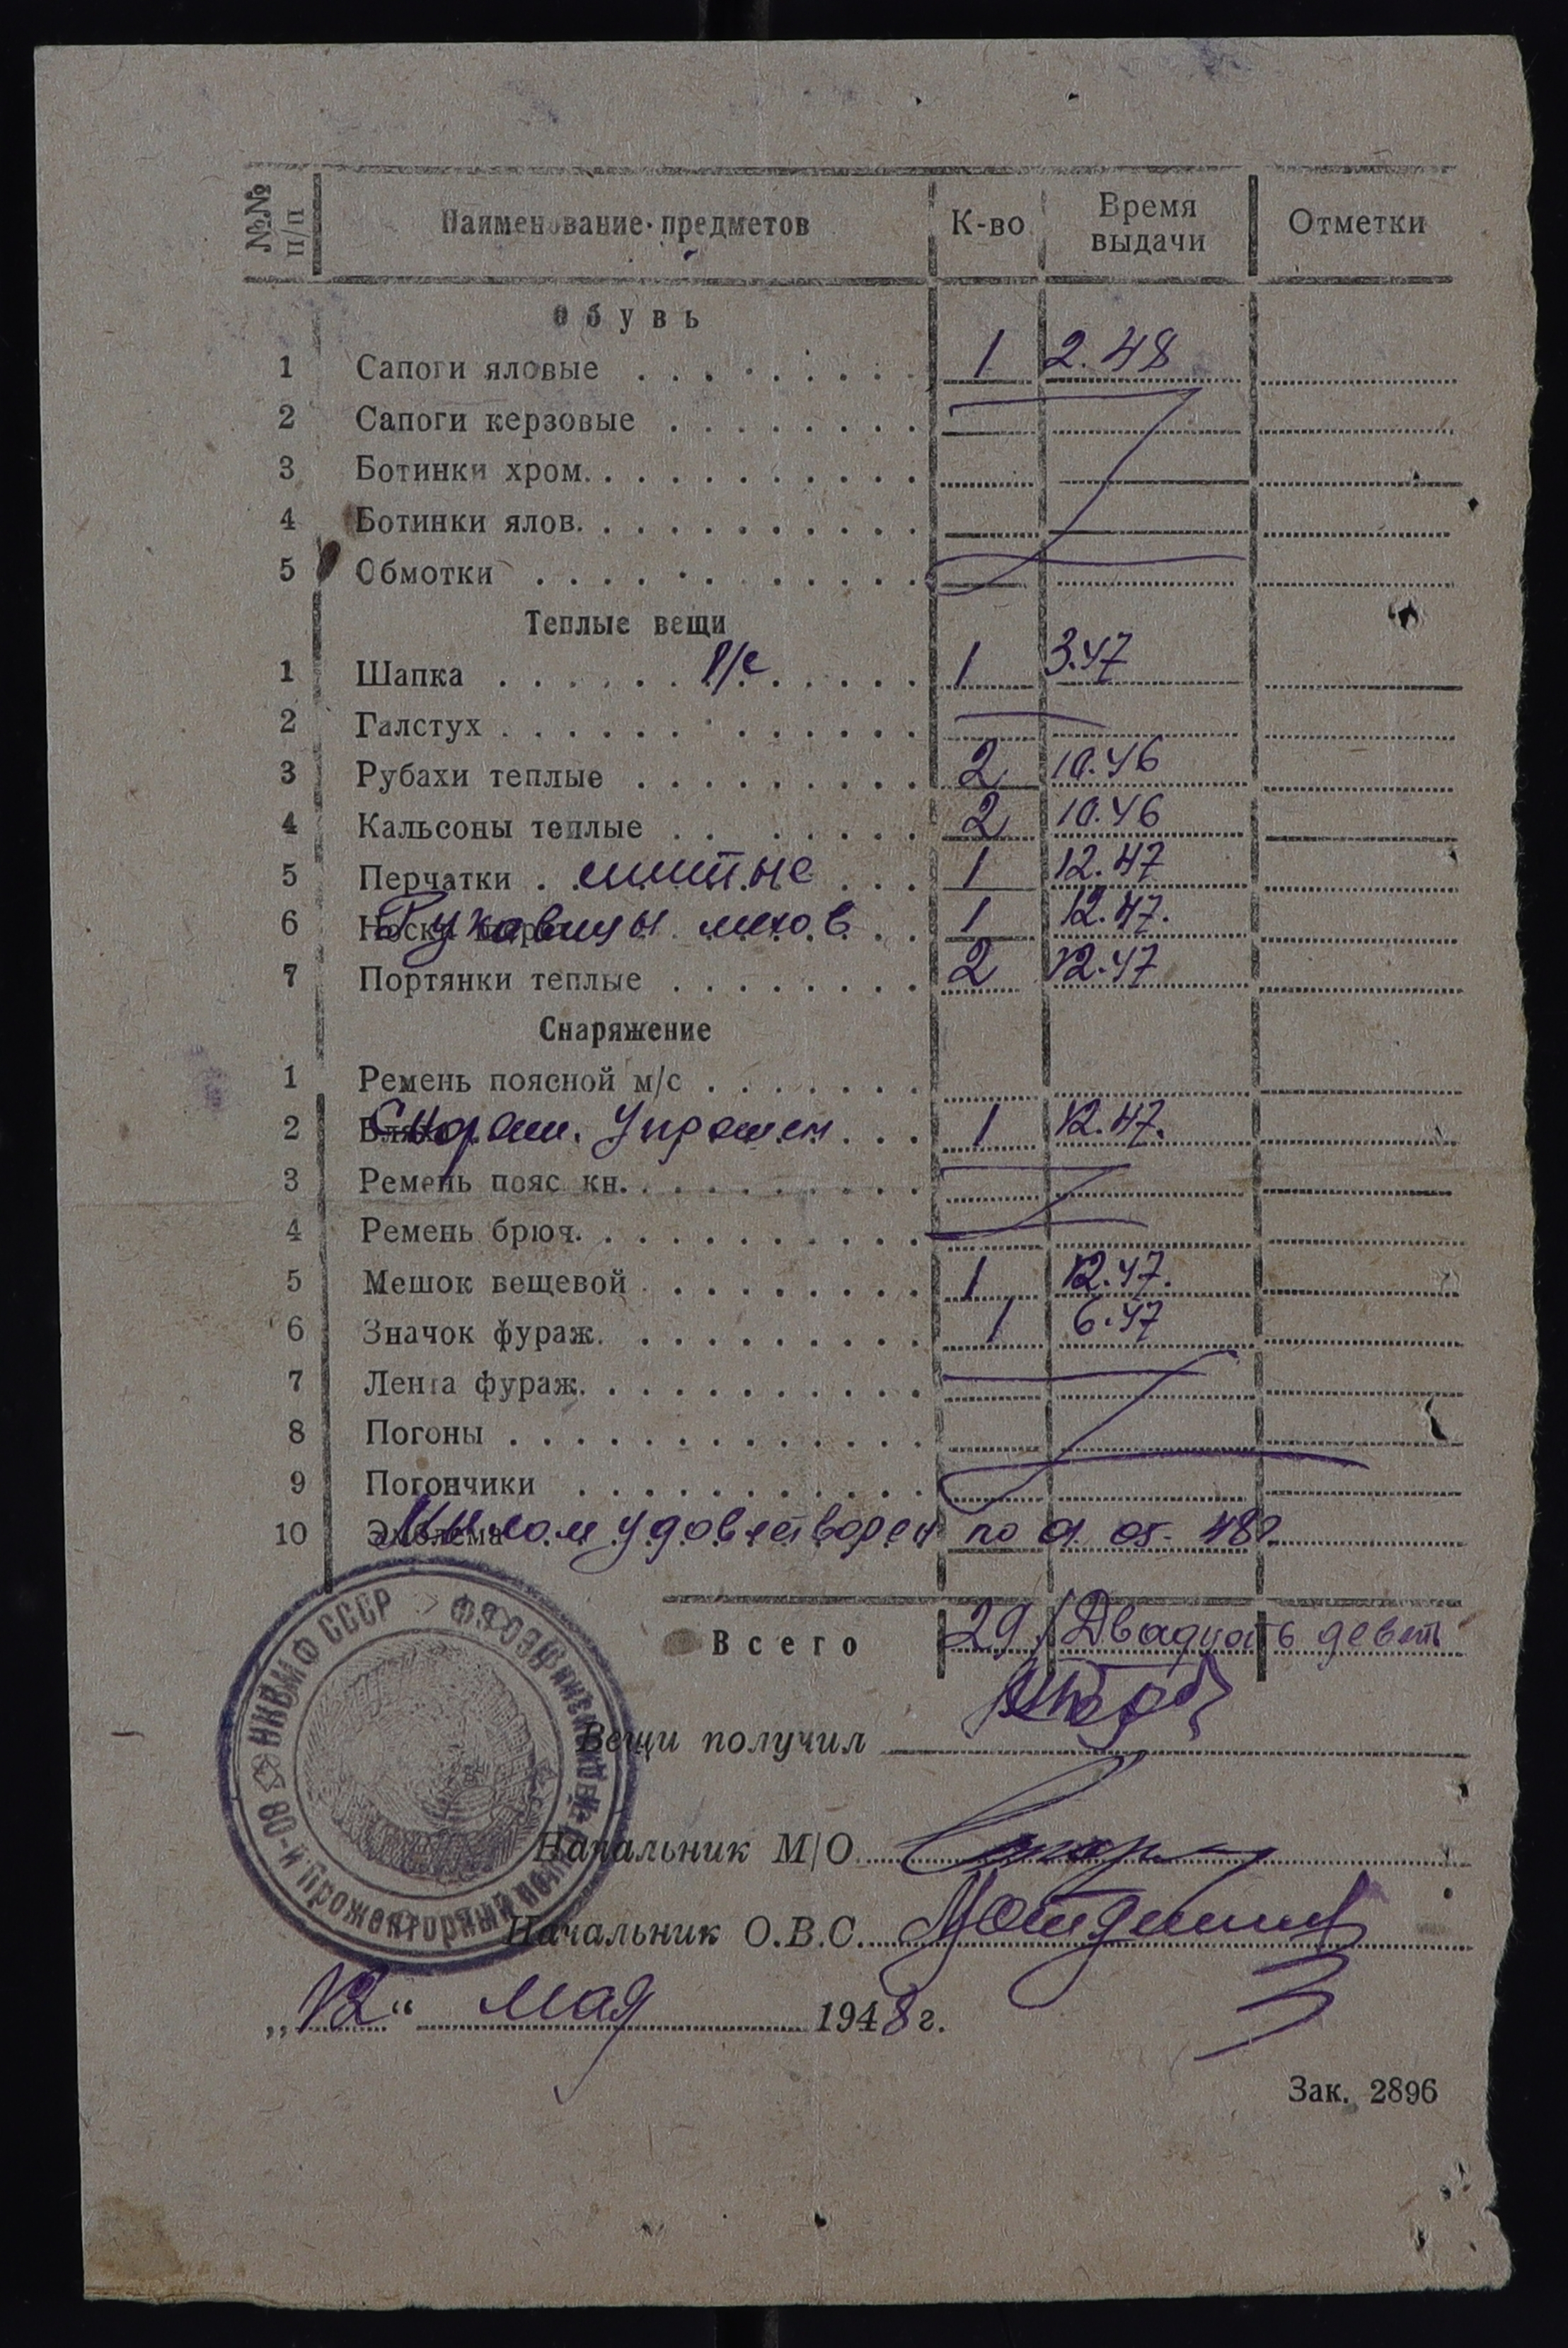 №№ п/п Наименование предметов К-во Время выдачи Отметки
Обувь
1 Сапоги яловые . . . . . . . . 1 2.48
2 Сапоги керзовые . . . . . . . .
3 Ботинки хром. . . . . . . . . .
4 Ботинки ялов. . . . . . . . . .
5 Обмотки . . . . . . . . . . . .
Теплые вещи
1 Шапка . . . . . . р/с . . . . . 1 3.47
2 Галстух . . . . . . . . . . . .
3 Рубахи теплые . . . . . . . . . 2 10.46
4 Кальсоны теплые . . . . . . . 2 10.46
5 Перчатки . шитые . . . 1 12.47
6 Носки Рукавицы мехов . . 1 12.47.
7 Портянки теплые . . . . . . . . 2 12.47
Снаряжение
1 Ремень поясной м/с . . . . . . .
2 Бляха Снаряж. Упрощен . . . 1 12.47.
3 Ремень пояс кн. . . . . . . . .
4 Ремень брюч. . . . . . . . . . .
5 Мешок вещевой . . . . . . . . 1 12.47.
6 Значок фураж. . . . . . . . . . 1 6.47
7 Лента фураж. . . . . . . . . . .
8 Погоны . . . . . . . . . . . . .
9 Погончики . . . . . . . . . . .
10 Эмблема Мылом удовлетворен по 01.05-48г.
Всего 29 /Двадцать девять
НКВМФ СССР
80-й Прожекторный полк
Вещи получил
Начальник М/О
Начальник О.В.С.
„12“ мая 1948 г.
Зак. 2896